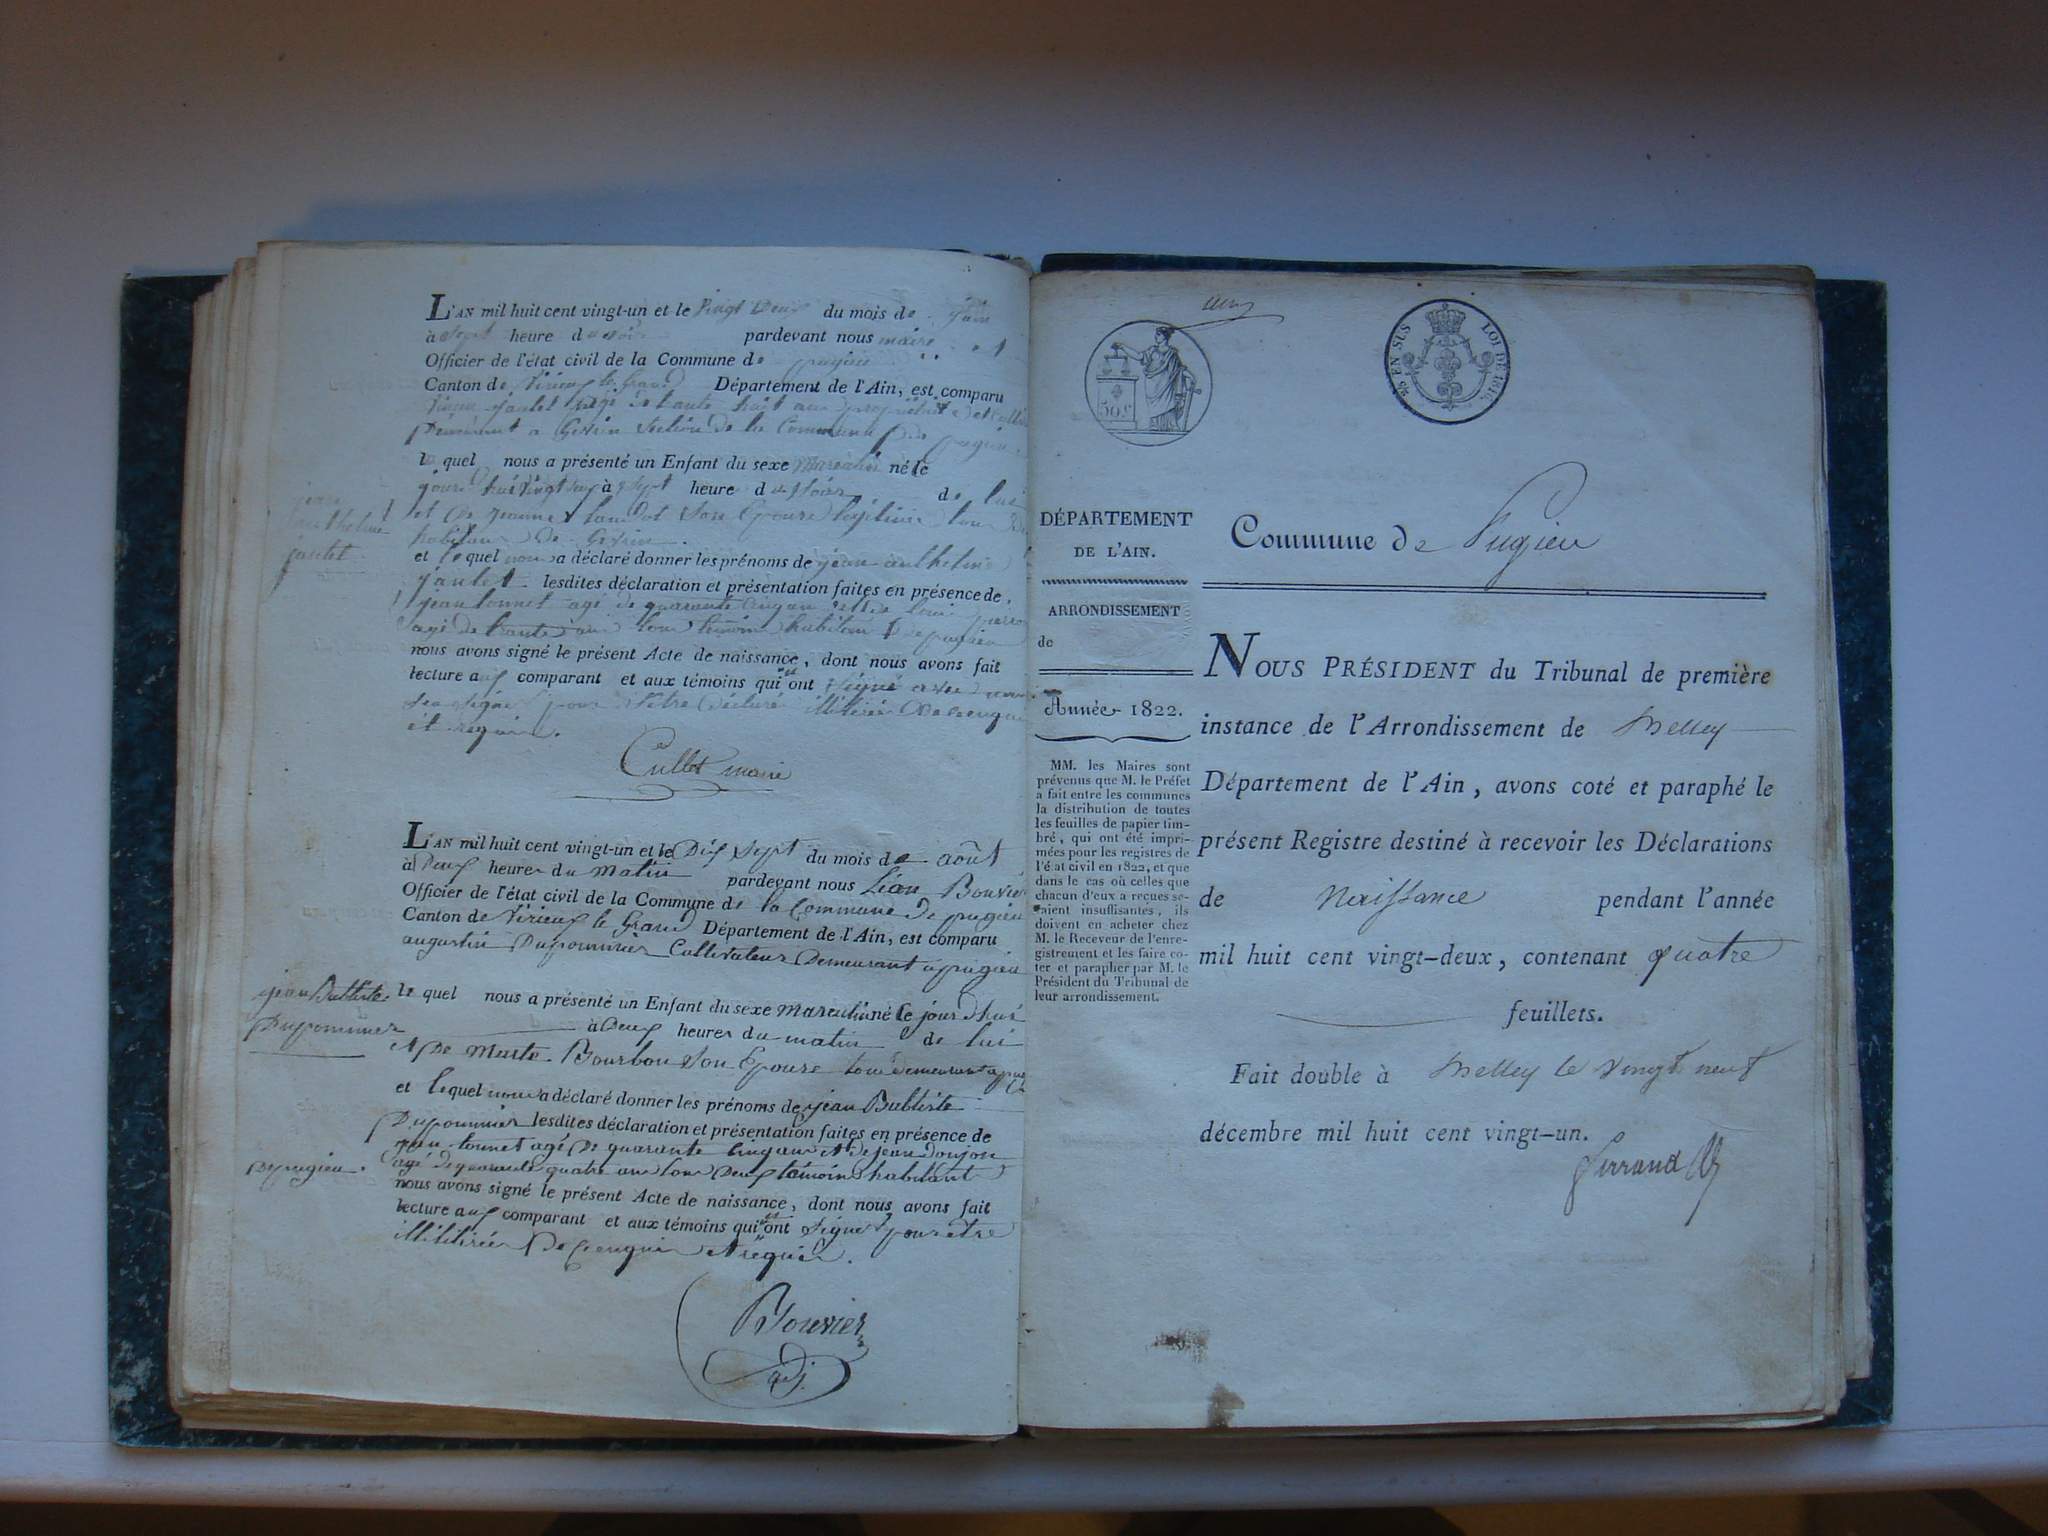 L'AN mil huit cent vingt-un et le Vingt Deux du mois de juin
à Sept heure du soir pardevant nous maire
Officier de l'état civil de la Commune de pugieu
Canton de Virieux le Grand Département de l'Ain, est comparu
jaulet agé de trente huit ans propriétaire et
Demeurant a Section de la Commune De pugieu
le quel nous a présenté un Enfant du sexe Masculin né le
jourd'hui vingt deux à Sept heure du Soir de lui
et De jeanne Son Epouse légitime tous
habitans de
jean
anthelme
jaulet
et lequel nous a déclaré donner les prénoms de jean anthelme
jaulet lesdites déclaration et présentation faites en présence de
jean tonnet agé de quarante cinq ans et de
agé de trente ans tous témoins habitans De pugieu
nous avons signé le présent Acte de naissance, dont nous avons fait
lecture aux comparant et aux témoins qui ont signé avec nous
pour illitirés De ce enquis
et requis.
Cullet maire
L'AN mil huit cent vingt-un et le Dix Sept du mois de août
à Deux heures du matin pardevant nous Léan Bouvier
Officier de l'état civil de la Commune de la Commune De pugieu
Canton de Virieux le Grand Département de l'Ain, est comparu
augustin Dupommier Cultivateur Demeurant a pugieu
jean Babtiste
Dupommier
le quel nous a présenté un Enfant du sexe Masculin né le jourd'hui
à Deux heures du matin de lui
et De Marte Bourbon Son Epouse tous demeurant a
et lequel nous a déclaré donner les prénoms de jean Babtiste
Dupommier lesdites déclaration et présentation faites en présence de
jean tonnet agé De quarante cinq ans et De jean donjon
agé de quarante quatre ans tous Deux témoins habitant
Depugieu.
nous avons signé le présent Acte de naissance, dont nous avons fait
lecture aux comparant et aux témoins qui n'ont signés pour être
illitirés De ce enquis et requis.
Bouvier
adj.
50 c
EN SUS LOI DE 1816.
DÉPARTEMENT
DE L'AIN.
ARRONDISSEMENT
de
Année 1822.
MM. les Maires sont
prévenus que M. le Préfet
a fait entre les communes
la distribution de toutes
les feuilles de papier tim-
bré, qui ont été impri-
mées pour les registres de
l'état civil en 1822, et que
dans le cas où celles que
chacun d'eux a reçues se-
raient insuffisantes, ils
doivent en acheter chez
M. le Receveur de l'enre-
gistrement et les faire co-
ter et parapher par M. le
Président du Tribunal de
leur arrondissement.
Commune de Pugieu
NOUS PRÉSIDENT du Tribunal de première
instance de l'Arrondissement de Belley
Département de l'Ain, avons coté et paraphé le
présent Registre destiné à recevoir les Déclarations
de Naissance pendant l'année
mil huit cent vingt-deux, contenant quatre
feuillets.
Fait double à Belley le vingt neuf
décembre mil huit cent vingt-un.
Ferrand